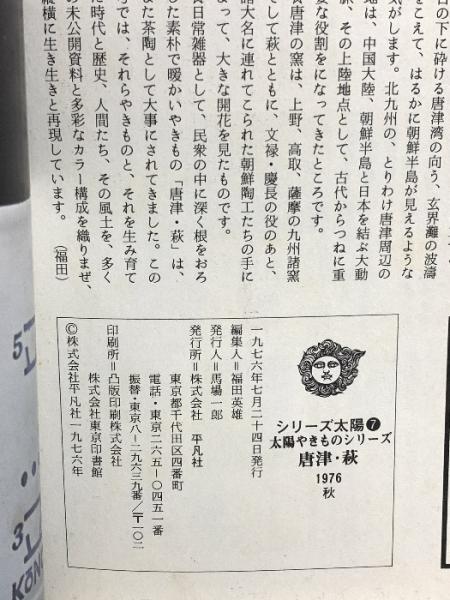 の下に砕ける唐津湾の向う、玄界灘の波濤
をこえて、はるかに朝鮮半島が見えるような
気がします。北九州の、とりわけ唐津周辺の
地は、中国大陸、朝鮮半島と日本を結ぶ大動
脈、その上陸地点として、古代からつねに重
要な役割をになってきたところです。
唐津の窯は、上野、高取、薩摩の九州諸窯
そして萩とともに、文禄・慶長の役のあと、
諸大名に連れてこられた朝鮮陶工たちの手に
よって、大きな開花を見たものです。
日常雑器として、民衆の中に深く根をおろ
した素朴で暖かいやきもの「唐津・萩」は、
また茶陶として大事にされてきました。この
号では、それらやきものと、それを生み育て
た時代と歴史、人間たち、その風土を、多く
の未公開資料と多彩なカラー構成を織りまぜ、
縦横に生き生きと再現しています。
（福田）
シリーズ太陽❼
太陽やきものシリーズ
唐津・萩
1976
秋
一九七六年七月二十四日発行
編集人＝福田英雄
発行人＝馬場一郎
発行所＝株式会社 平凡社
東京都千代田区四番町
電話・東京二六五―〇四五一番
振替・東京八―二九六三九番／〒一〇二
印刷所＝凸版印刷株式会社
株式会社東京印書館
©株式会社平凡社一九七六年